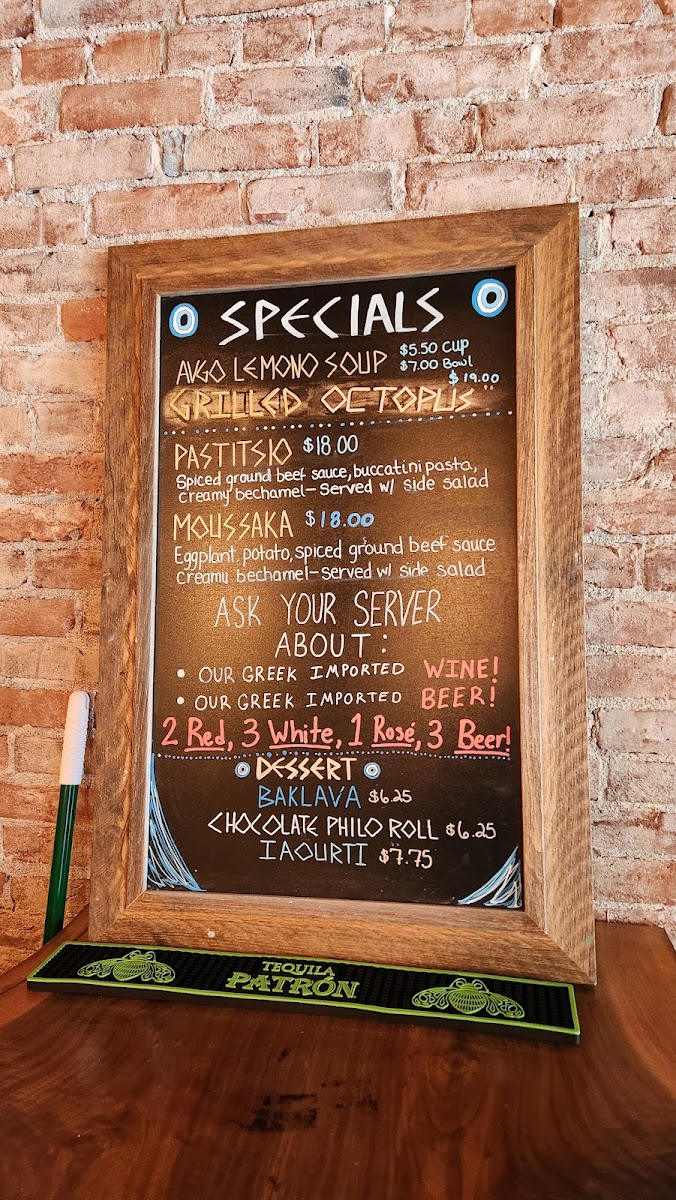 SPECIALS
AVGO LEMONO SOUP $5.50 CUP
$7.00 Bowl
$19.00
GRILLED OCTOPUS
PASTITSIO $18.00
Spiced ground beef sauce, buccatini pasta,
creamy bechamel- Served w/ side salad
MOUSSAKA $18.00
Eggplant, potato, spiced ground beef sauce
creamy bechamel- Served w/ side salad
ASK YOUR SERVER
ABOUT:
• OUR GREEK IMPORTED WINE!
• OUR GREEK IMPORTED BEER!
2 Red, 3 White, 1 Rosé, 3 Beer!
DESSERT
BAKLAVA $6.25
CHOCOLATE PHILO ROLL $6.25
IAOURTI $7.75
TEQUILA
PATRÓN